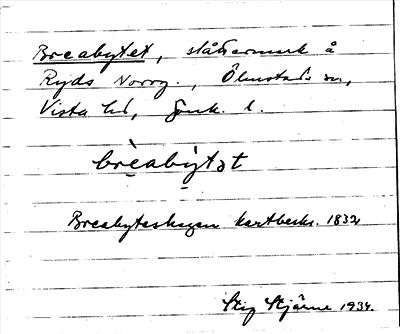 Breabytet, slåttermark å
Ryds Norrg., Ölmstads sn,
Vista hd, Jönk. l.
brèabỳtət
Breabyteshagen kartbeskr. 1832
Stig Stjärne 1934.